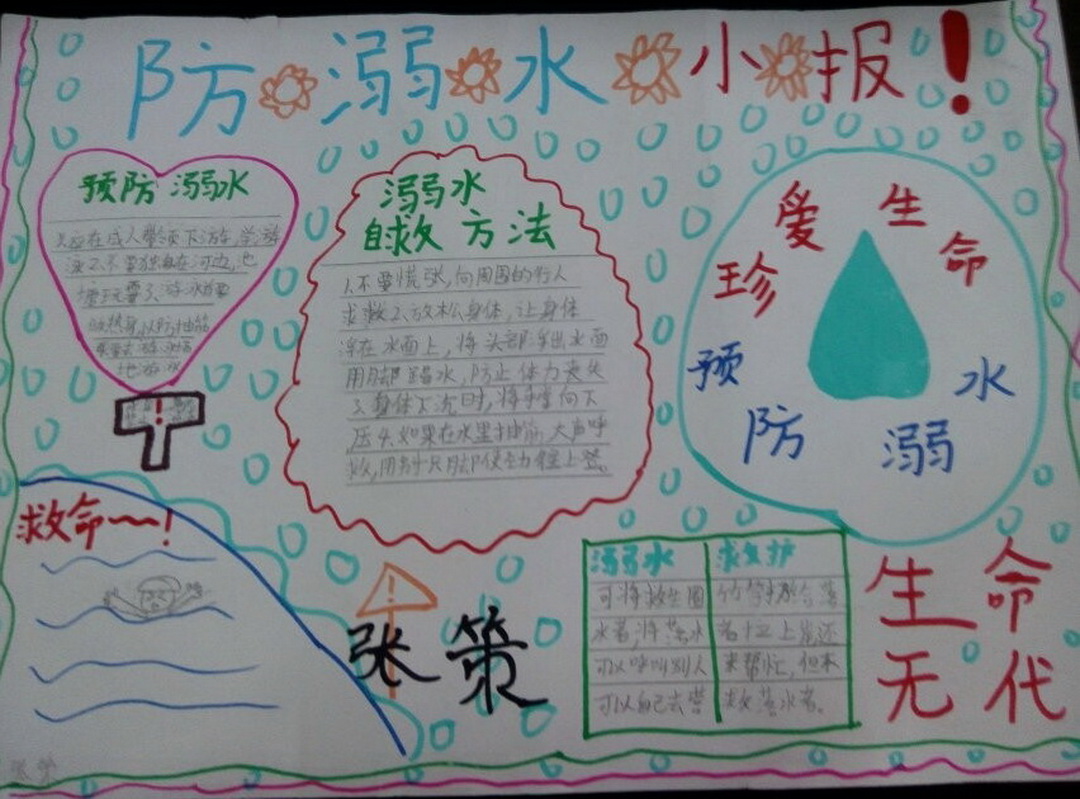 防溺水小报!
预防溺水
1.应在成人带领下游泳,学游
泳2.不要独自在河边,池
塘玩耍3.游泳前要
做热身,以防抽筋
地游泳
!
溺水
自救方法
1.不要慌张,向周围的行人
求救2.放松身体,让身体
浮在水面上,将头部浮出水面
用脚踢水,防止体力丧失
3.身体下沉时,将手掌向下
压4.如果在水里抽筋,大声呼
救,用另一只脚使劲往上登。
珍爱生命
预防溺水
救命~~!
!
张策
溺水救护
可将救生圈竹竿抛给落
水者,将落水者拉上岸还
可以呼叫别人来帮忙,但不
可以自己去营救落水者。
生命
无代
张策